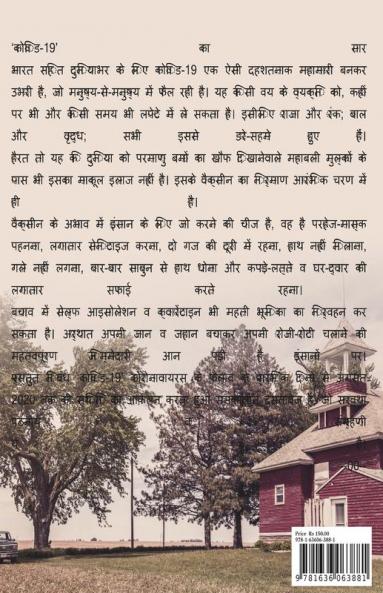 'कोविड-19' का सार
भारत सहित दुनियाभर के लिए कोविड-19 एक ऐसी दहशतनाक महामारी बनकर
उभरी है, जो मनुष्य-से-मनुष्य में फैल रही है। यह किसी वय के व्यक्ति को, कहीं
पर भी और किसी समय भी लपेटे में ले सकता है। इसीलिए राजा और रंक; बाल
और वृद्ध; सभी इससे डरे-सहमे हुए हैं।
हैरत तो यह कि दुनिया को परमाणु बमों का खौफ दिखानेवाले महाबली मुल्कों के
पास भी इसका माकूल इलाज नहीं है। इसके वैक्सीन का निर्माण आरंभिक चरण में
ही है।
वैक्सीन के अभाव में इंसान के लिए जो करने की चीज है, वह है परहेज-मास्क
पहनना, लगातार सेनिटाइज करना, दो गज की दूरी में रहना, हाथ नहीं मिलाना,
गले नहीं लगना, बार-बार साबुन से हाथ धोना और कपड़े-लत्ते व घर-द्वार की
लगातार सफाई करते रहना।
बचाव में सेल्फ आइसोलेशन व क्वारेंटाइन भी महती भूमिका का निर्वहन कर
सकता है। अर्थात अपनी जान व जहान बचाकर अपनी रोजी-रोटी चलाने की
महत्वपूर्ण जिम्मेदारी आन पड़ी है इंसानों पर।
प्रस्तुत निबंध 'कोविड-19' कोरोनावायरस के फैलाव के प्रारंभिक दिनों से
2020 तक की का आकलन करता हुआ दस्तावेज है, जो
-00-
Price Rs 150.00
978-1-63606-388-1
9 781636 063881